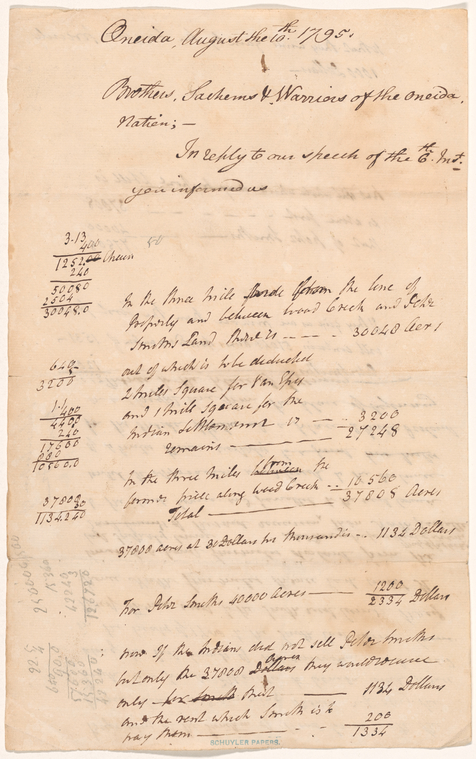 Oneida, August the 10th. 1795.
Brothers, Sachems & Warriors of the Oneida
Nation; —
In reply to our speech of the 6th. Inst.
you informed us
3.13
400
125200 Chains
240
50080
2504
300480
In the three mile from the line of
Property and between wood Creek and Peter
Smiths Land there is — 30048 Acres
out of which is to be deducted
2 miles Square for Van Eps
and 1 mile Square for the
Indian Settlement is — 3200
remains — 27248
640
3200
1.1
400
4400
240
17600
880
105600
In the three Miles from the
former price along Wood Creek .. 10.560
Total — 37808 Acres
37808
30
1134240
37800 acres at 30 Dollars per thousand is .. 1134 Dollars
For Peter Smiths 40000 Acres — 1200
2334 Dollars
now If the Indians did not sell Peter Smiths
but only the 37800 Acres they would receive
only — 1134 Dollars
and the rent which Smith is to
pay them — 200
1334
SCHUYLER PAPERS.